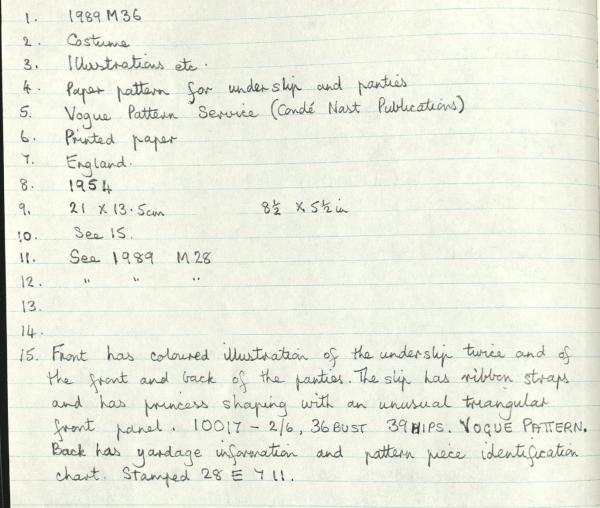 1. 1989 M36
2. Costume
3. Illustrations etc.
4. Paper pattern for underslip and panties
5. Vogue Pattern Service (Condé Nast Publications)
6. Printed paper
7. England.
8. 1954
9. 21 x 13.5cm 8½ x 5½ in
10. See 15.
11. See 1989 M28
12. " " "
13.
14.
15. Front has coloured illustration of the underslip twice and of
the front and back of the panties. The slip has ribbon straps
and has princess shaping with an unusual triangular
front panel. 10017 - 2/6, 36 BUST 39 HIPS. VOGUE PATTERN.
Back has yardage information and pattern piece identification
chart. Stamped 28 E 711.